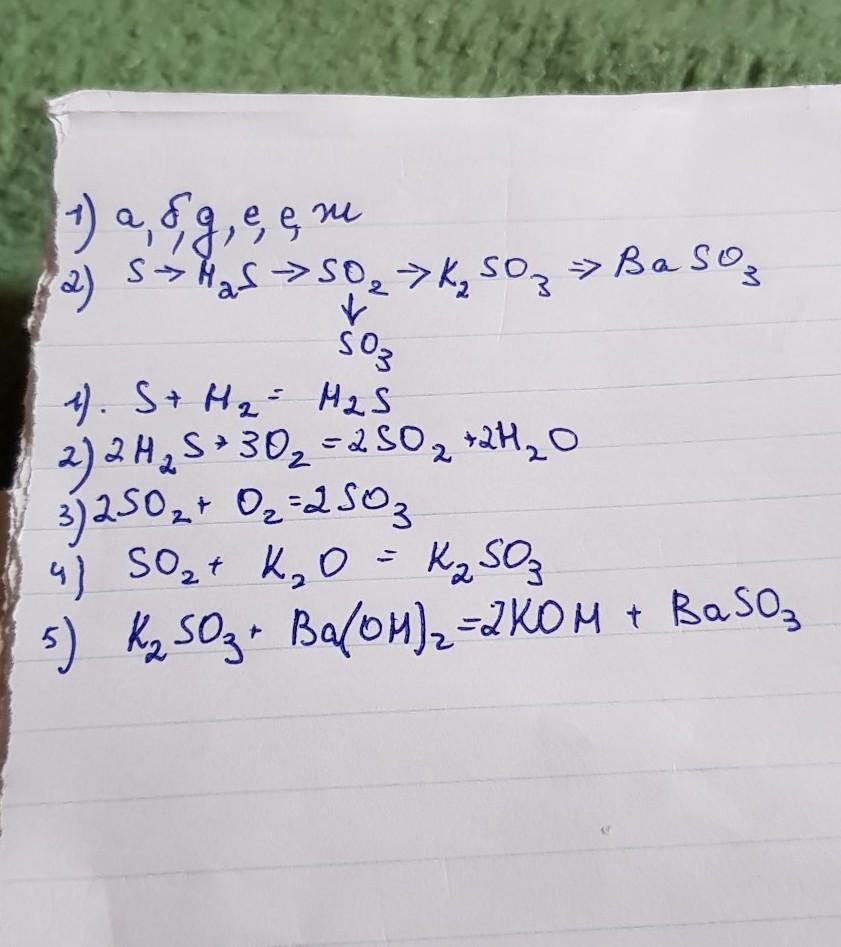 1) а, б, д, е, е, ж
2) S → H₂S → SO₂ → K₂SO₃ ⇒ BaSO₃
↓
SO₃
1). S + H₂ = H₂S
2) 2H₂S + 3O₂ = 2SO₂ + 2H₂O
3) 2SO₂ + O₂ = 2SO₃
4) SO₂ + K₂O = K₂SO₃
5) K₂SO₃ + Ba(OH)₂ = 2KOH + BaSO₃